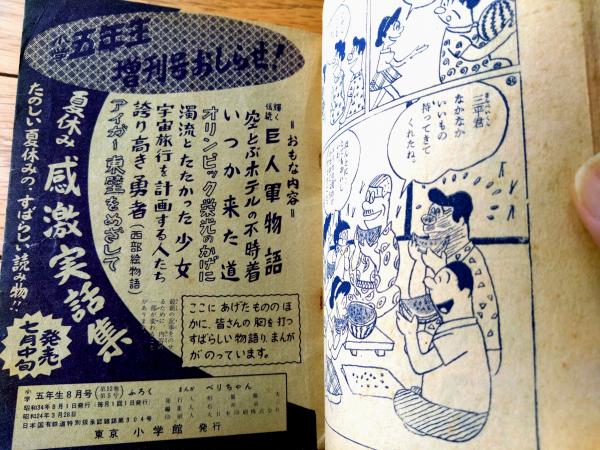 小学五年生
増刊号おしらせ!
=おもな内容=
輝く伝統 巨人軍物語
空とぶホテルの不時着
いつか来た道
オリンピック栄光のかげに
濁流とたたかった少女
宇宙旅行を計画する人たち
誇り高き勇者(西部絵物語)
アイガー東壁をめざして
夏休み 感激実話集
たのしい夏休みの、すばらしい読み物!!
発売
七月中旬
ここにあげたもののほ
かに、皆さんの胸を打つ
すばらしい物語り、まんが
がのっています。
小学五年生8月号(第12巻第5号)ふろく まんが ベリちゃん
昭和34年8月1日発行(毎月1回1日発行)
昭和24年3月28日
日本国有鉄道特別扱承認雑誌第304号
東京 小学館 発行
三平君
なかなか
いいもの
持ってきて
くれたね。